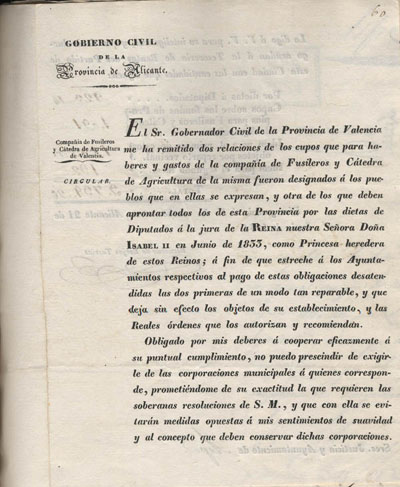 60
GOBIERNO CIVIL
DE LA
Provincia de Alicante.
Compañía de Fusileros
y Cátedra de Agricultura
de Valencia.
CIRCULAR.
El Sr. Gobernador Civil de la Provincia de Valencia
me ha remitido dos relaciones de los cupos que para ha-
beres y gastos de la compañía de Fusileros y Cátedra
de Agricultura de la misma fueron designados á los pue-
blos que en ellas se expresan, y otra de los que deben
aprontar todos los de esta Provincia por las dietas de
Diputados á la jura de la REINA nuestra Señora Doña
ISABEL II en Junio de 1833, como Princesa heredera
de estos Reinos; á fin de que estreche á los Ayunta-
mientos respectivos al pago de estas obligaciones desaten-
didas las dos primeras de un modo tan reparable, y que
deja sin efecto los objetos de su establecimiento, y las
Reales órdenes que los autorizan y recomiendan.
Obligado por mis deberes á cooperar eficazmente á
su puntual cumplimiento, no puedo prescindir de exigir-
le de las corporaciones municipales á quienes correspon-
de, prometiéndome de su exactitud la que requieren las
soberanas resoluciones de S. M., y que con ella se evi-
tarán medidas opuestas á mis sentimientos de suavidad
y al concepto que deben conservar dichas corporaciones.